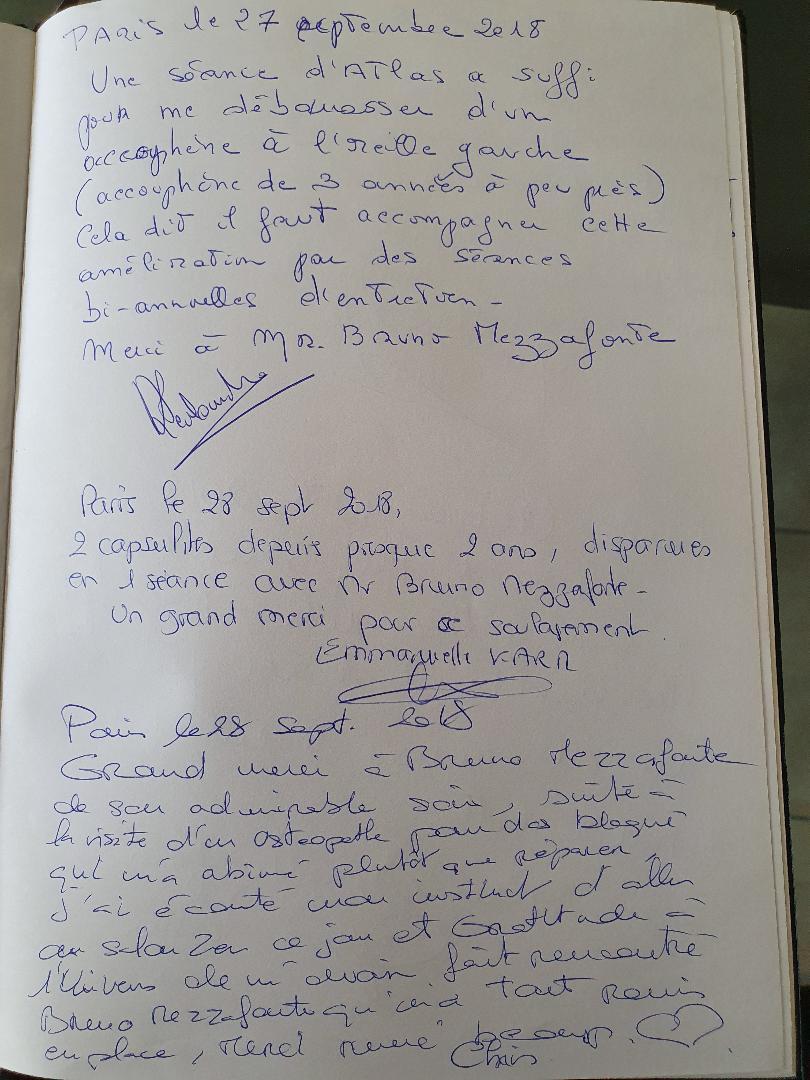 PARIS le 27 septembre 2018
Une séance d'ATlas a suffi
pour me débarrasser d'un
accouphène à l'oreille gauche
(accouphène de 3 années à peu près)
Cela dit il faut accompagner cette
amélioration par des séances
bi-annuelles d'entretien -
Merci à Mr. Bruno Mezzafonte
Paris le 28 sept 2018,
2 capsulites depuis presque 2 ans, disparues
en 1 séance avec Mr Bruno Mezzafonte -
Un grand merci pour ce soulagement.
Emmanuelle
Paris le 28 sept. 2018
Grand merci à Bruno Mezzafonte
de son admirable soin, suite à
la visite d'un osteopathe pour dos bloqué
qui m'a abimé plutôt que réparer,
j'ai écouté mon instinct d'aller
au salon Zen ce jour et Gratitude à
l'Univers de m'avoir fait rencontré
Bruno Mezzafonte qui m'a tout remis
en place, merci merci beaucp.
Chris